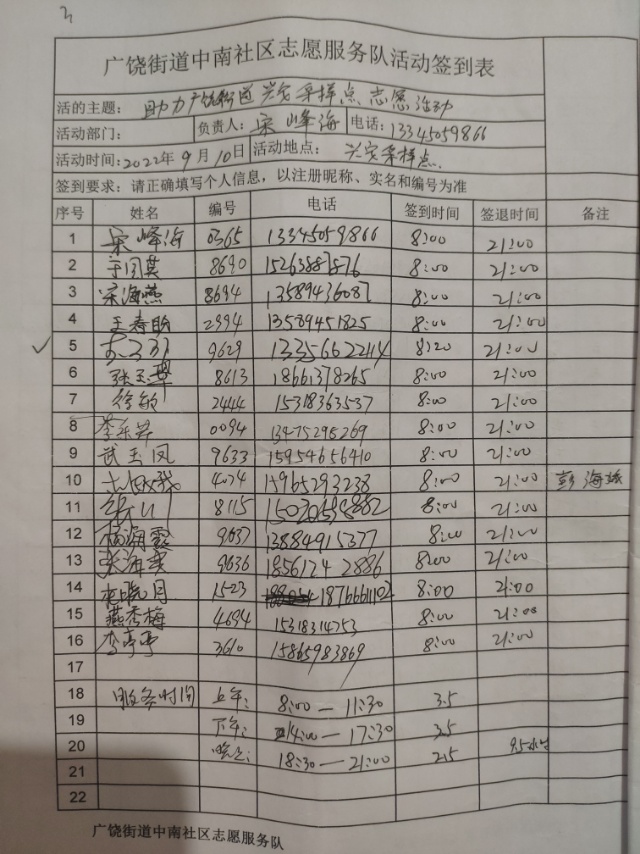 广饶街道中南社区志愿服务队活动签到表
活的主题： 助力广饶街道兴安采样点志愿活动
活动部门： 负责人：宋峰海 电话：13345059866
活动时间：2022年9月10日 活动地点： 兴安采样点
签到要求：请正确填写个人信息，以注册昵称、实名和编号为准
序号 姓名 编号 电话 签到时间 签退时间 备注
1 宋峰海 0365 13345059866 8:00 21:00
2 8690 15263887876 8:00 21:00
3 宋海燕 8694 13589436087 8:00 21:00
4 2994 13589451825 8:00 21:00
5 9629 13356622414 8:20 21:00
6 8613 18661378265 8:00 21:00
7 徐敏 2444 15318363537 8:00 21:00
8 0094 13475298269 8:00 21:00
9 武玉凤 9633 15954656410 8:00 21:00
10 4024 15965293238 8:00 21:00 彭海
11 8115 8:00 21:00
12 杨海霞 9637 13884915377 8:00 21:00
13 9636 18561242886 8:00 21:00
14 1523 8:00 21:00
15 燕秀梅 4694 15318314753 8:00 21:00
16 李亭亭 3610 15865983869 8:00 21:00
17
18 服务时间 上午： 8:00—11:30 3.5
19 下午： 14:00—17:30 3.5
20 晚上： 18:30—21:00 2.5 9.5小时
21
22
广饶街道中南社区志愿服务队